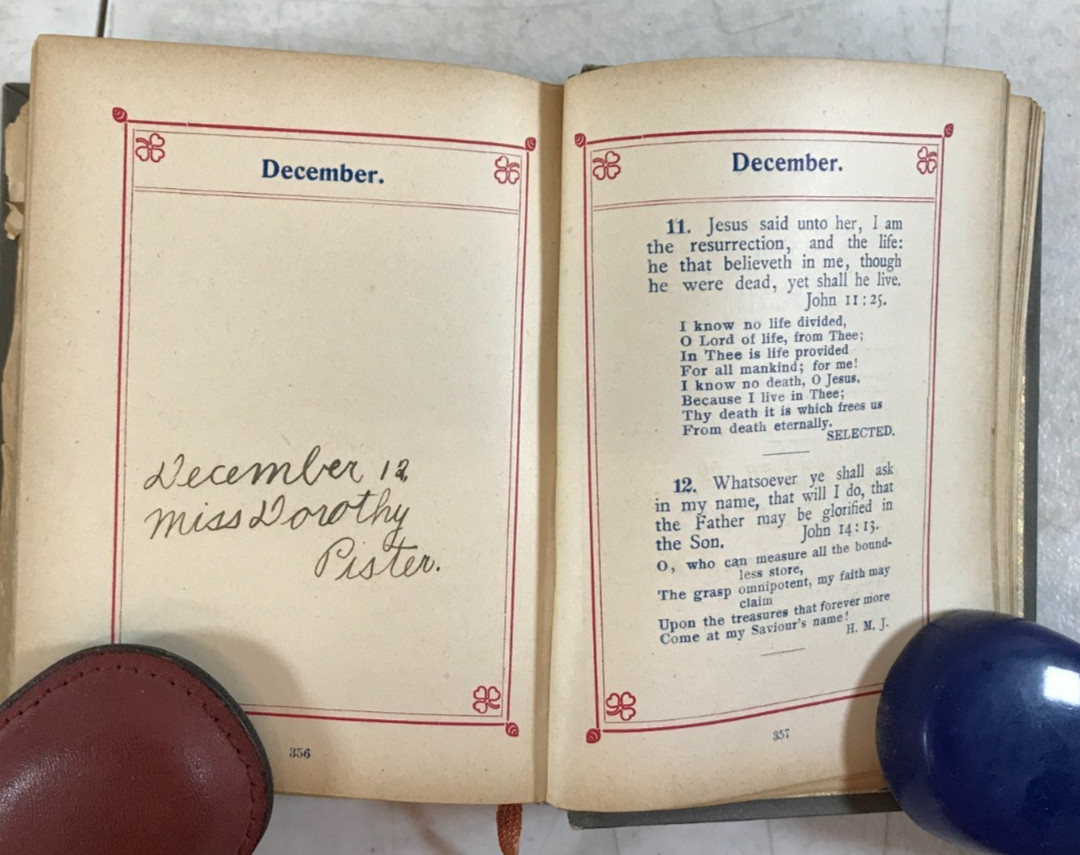 December.
December 12,
Miss Dorothy
Pister.
356
December.
11. Jesus said unto her, I am
the resurrection, and the life:
he that believeth in me, though
he were dead, yet shall he live.
John 11:25.
I know no life divided,
O Lord of life, from Thee;
In Thee is life provided
For all mankind; for me!
I know no death, O Jesus,
Because I live in Thee;
Thy death it is which frees us
From death eternally.
SELECTED.
12. Whatsoever ye shall ask
in my name, that will I do, that
the Father may be glorified in
the Son. John 14:13.
O, who can measure all the bound-
less store,
The grasp omnipotent, my faith may
claim
Upon the treasures that forever more
Come at my Saviour's name!
H. M. J.
357